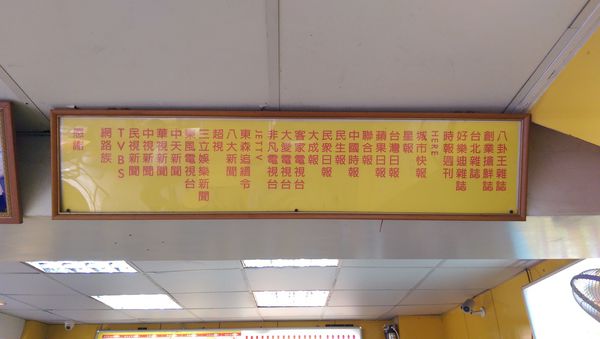 八卦王雜誌
創業搶鮮誌
台北雜誌
好樂迪雜誌
時報週刊
HERE
城市快報
星報
台灣日報
蘋果日報
聯合報
中國時報
民生報
民眾日報
大成報
客家電視台
大愛電視台
JETTV
非凡電視台
東森追緝令
八大新聞
超視
三立娛樂新聞
東風電視台
中天新聞
華視新聞
中視新聞
民視新聞
TVBS
網路族
感謝